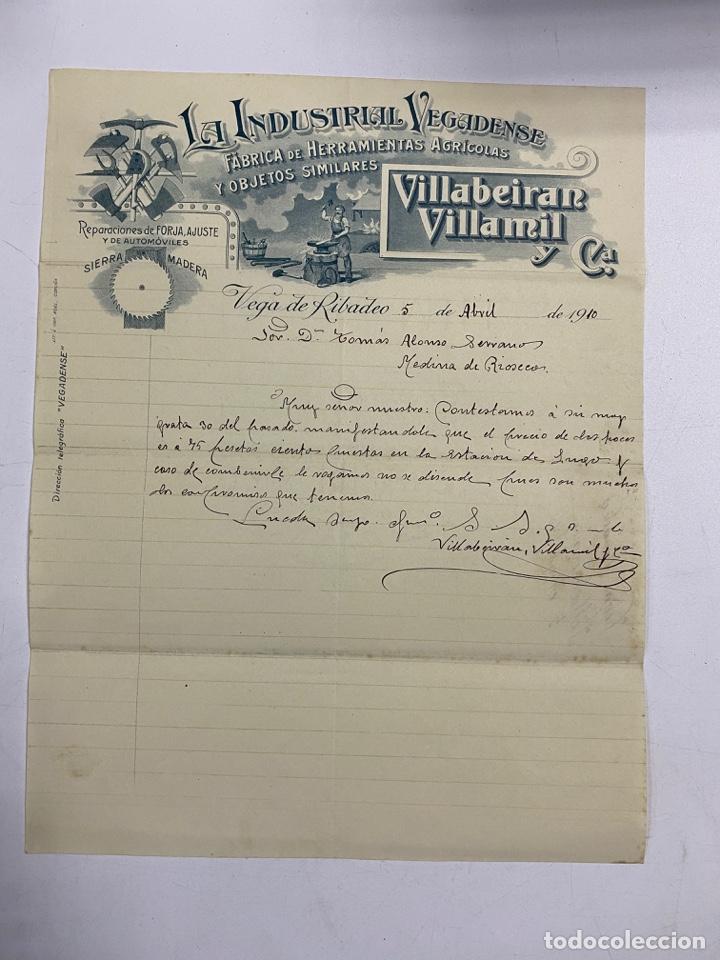 LA INDUSTRIAL VEGADENSE
FÁBRICA DE HERRAMIENTAS AGRÍCOLAS
Y OBJETOS SIMILARES
Villabeiran
Villamil
y Cía.
Reparaciones de FORJA, AJUSTE
Y DE AUTOMÓVILES
SIERRA MADERA
Dirección telegráfica "VEGADENSE"
Vega de Ribadeo 5 de Abril de 1910
Sor. Dn. Tomás Alonso Serrano
Medina de Rioseco
Muy señor nuestro: Contestamos á su muy
grata 30 del pasado, manifestandole que el precio de las
es á 75 pesetas ciento puestas en la Estacion de Lugo y
caso de combenirle le rogamos no se descuide pues son muchos
los compromisos que tenemos.
Queda suyo S. S. q. s. m. b.
Villabeirán, Villamil y Cª
todocoleccion
todocoleccion.net